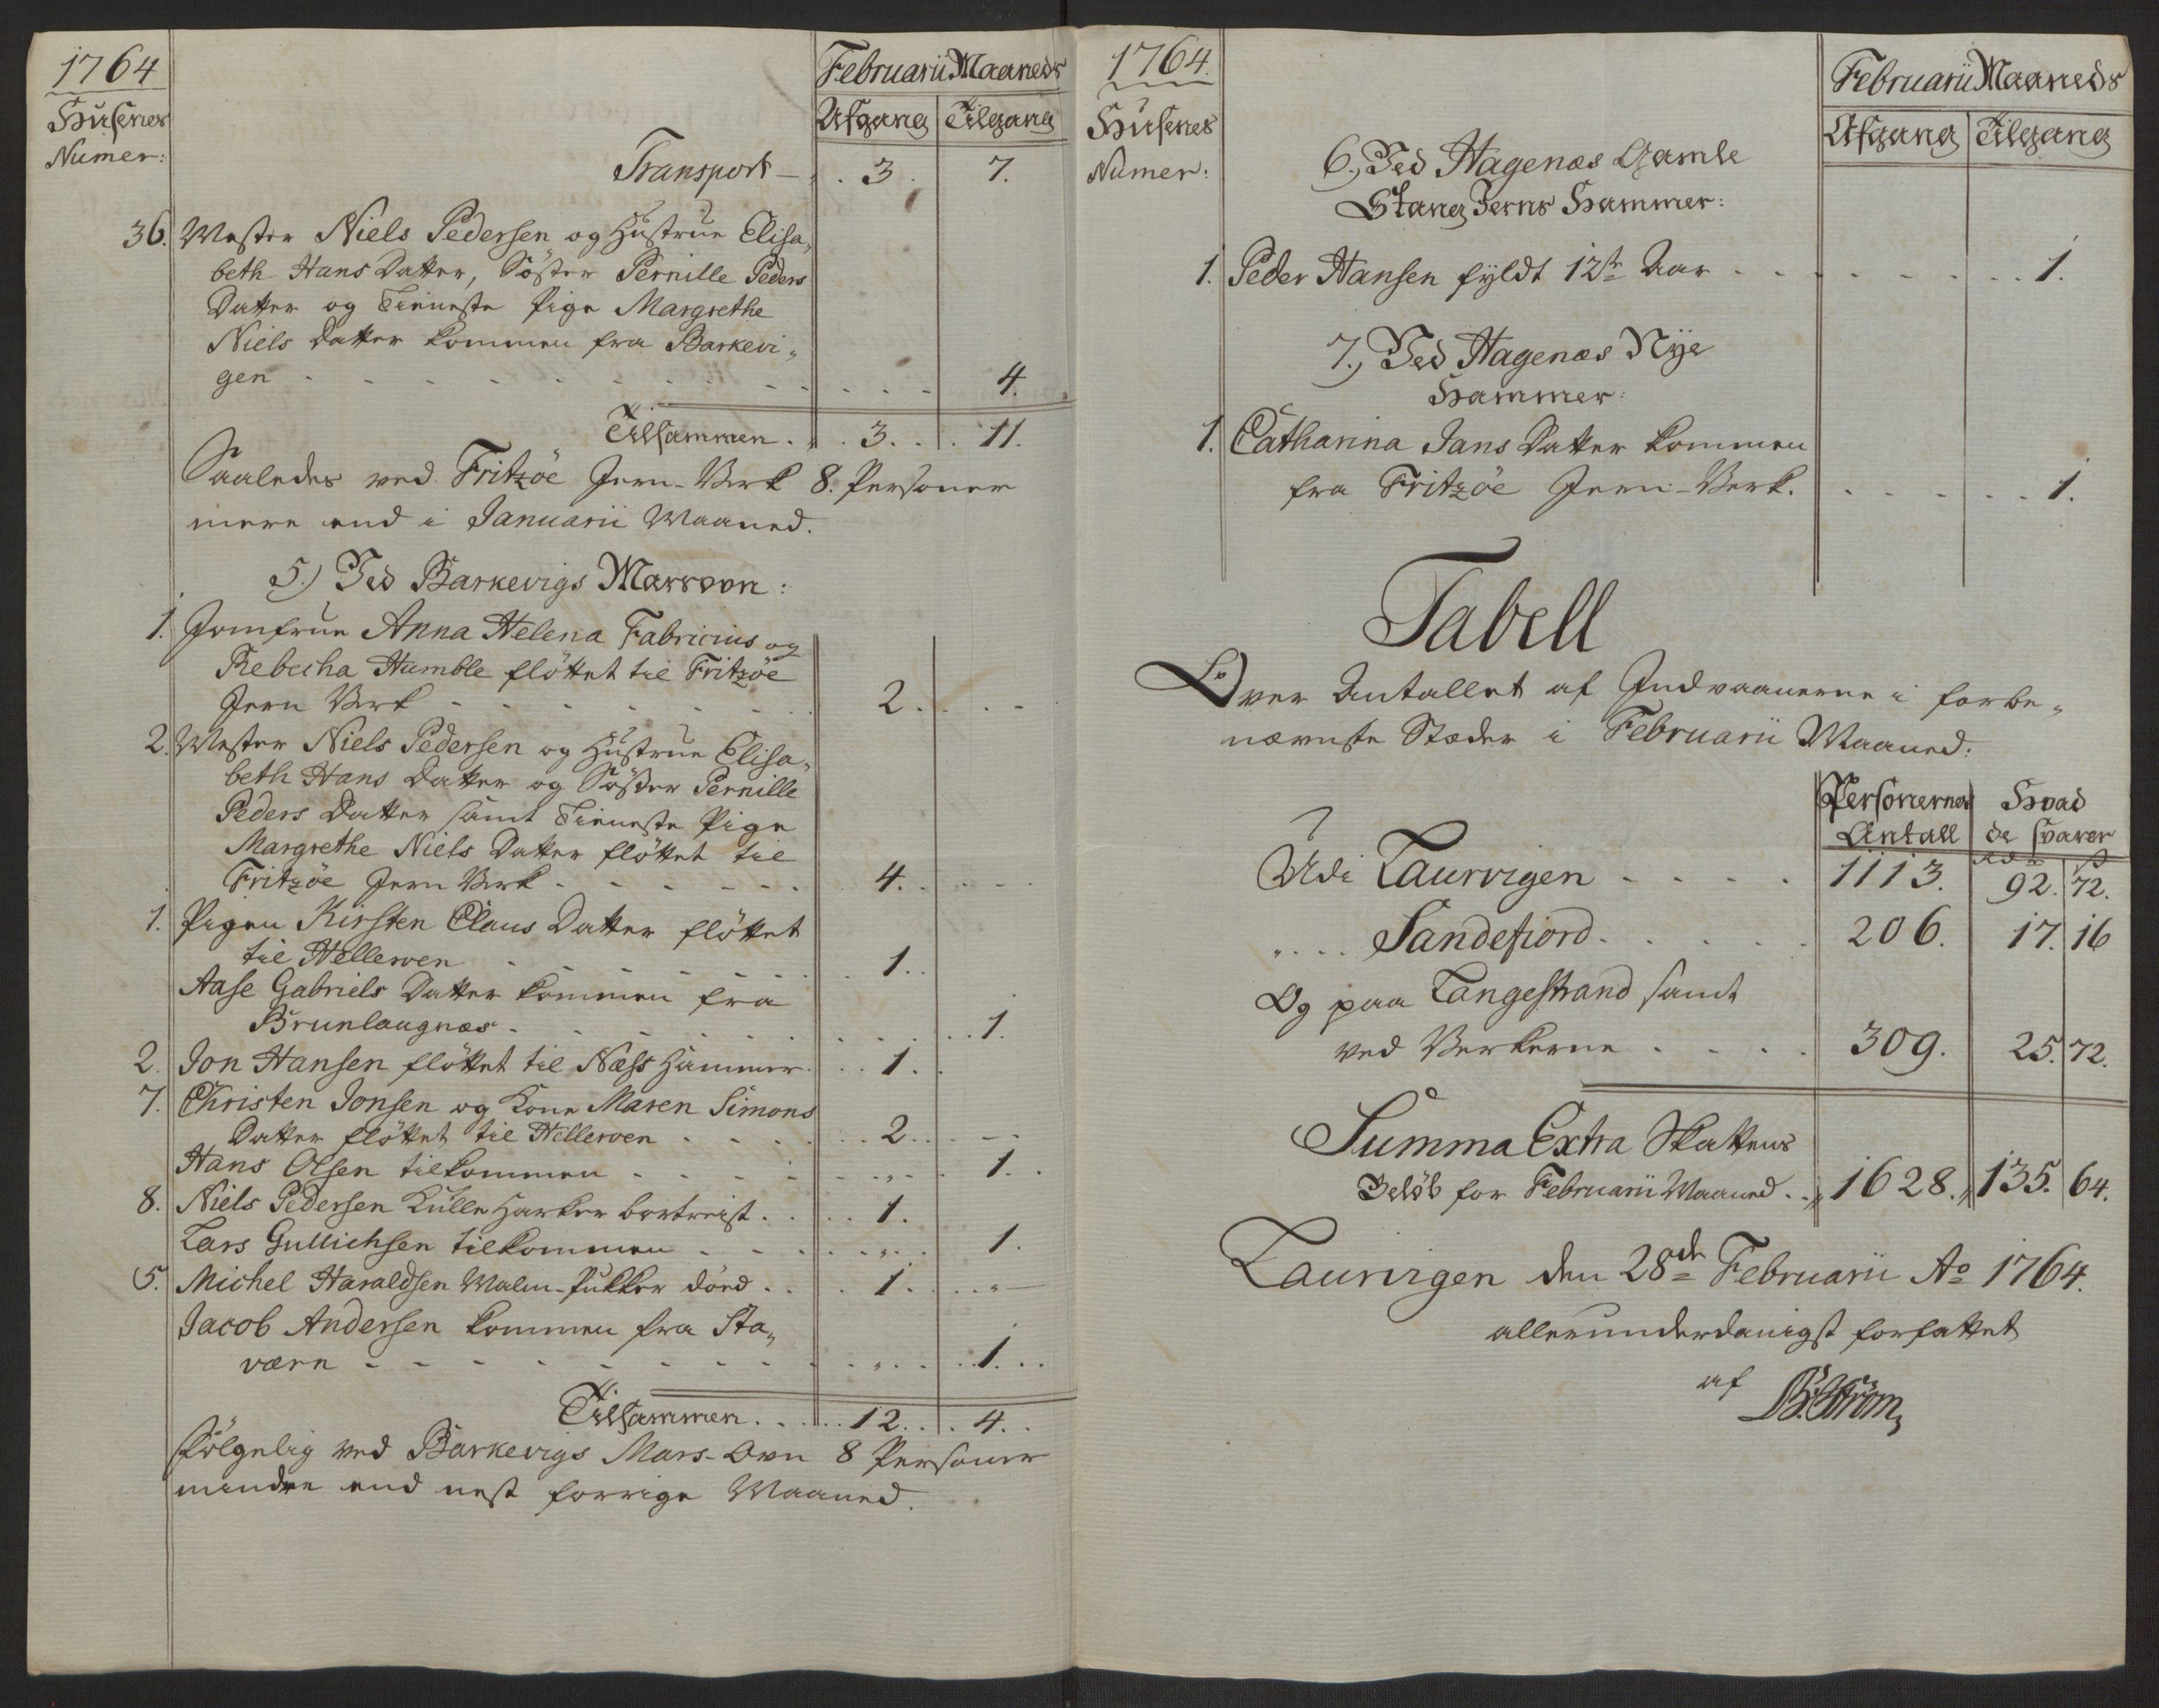 1764
Februarii Maaneds
Husenes
Numer:
Afgang Tilgang
Transport – 3. 7.
36. Mester Niels Pedersen og Hustrue Elisa„
beth Hans Datter, Söster Pernille Peders
Datter og Tieneste Pige Margrethe
Niels Datter kommen fra Barkevi„
gen - - - - 4.
Tilsammen . 3. . . 11.
Saaledes ved Fritzöe Jern-Verk 8. Personer
mere end i Januarii Maaned.
5.) Ved Barkevigs Marsovn:
1. Jomfrue Anna Helena Fabricius og
Rebecha Humble fløttet til Fritzöe
Jern Verk - - - - 2. . .
2. Mester Niels Pedersen og Hustrue Elisa„
beth Hans Datter og Söster Pernille
Peders Datter samt Tieneste Pige
Margrethe Niels Datter fløttet til
Fritzöe Jern Verk - - - - 4. . .
1. Pigen Kirsten Claus Datter fløttet
til Hellerven - - - - 1. .
Aase Gabriels Datter kommen fra
Brunlaugnæs - - - - 1.
2. Jon Hansen fløttet til Næss Hammer . . 1.
7. Christen Jonsen og Kone Maren Simons
Datter fløttet til Hellerven - - - 2. . .
Hans Olsen tilkommen - - - „ . . 1. .
8. Niels Pedersen Kulle Harker bortreist . . . 1.
Lars Gullichsen tilkommen - - - „ . . 1.
5. Michel Haraldsen Malm-Pukker döed . . . 1. . . „
Jacob Andersen kommen fra Sta„
værn - - - - „ . . 1. . .
Tilsammen . . . 12. . . 4. .
Fölgelig ved Barkevigs Mars-Ovn 8 Personer
mindre end nest forrige Maaned.
1764.
Februarii Maaneds
Husenes
Numer:
Afgang Tilgang
6.) Ved Hagenæs Gamle
Stang Jerns Hammer:
1. Peder Hansen fyldt 12te Aar - - - - 1.
7.) Ved Hagenæs Nye
Hammer:
1. Catharina Jans Datter kommen
fra Fritzöe Jern-Verk. - - - - 1.
Tabell
Over Antallet af Indvaanerne i forbe„
nævnte Stæder i Februarii Maaned:
Personernes Antall
Hvad de svarer
Rdr ß
Udi Laurvigen - - - - 1113. 92. 72.
„ . . . Sandefiord. . . . . 206. 17. 16
Og paa Langestrand samt
ved Verkerne - - - - 309. 25. 72.
Summa Extra Skattens
Belöb for Februarii Maaned . . 1628. 135. 64.
Laurvigen den 28de Februarii Ao 1764.
allerunderdanigst forfattet
af
Ström